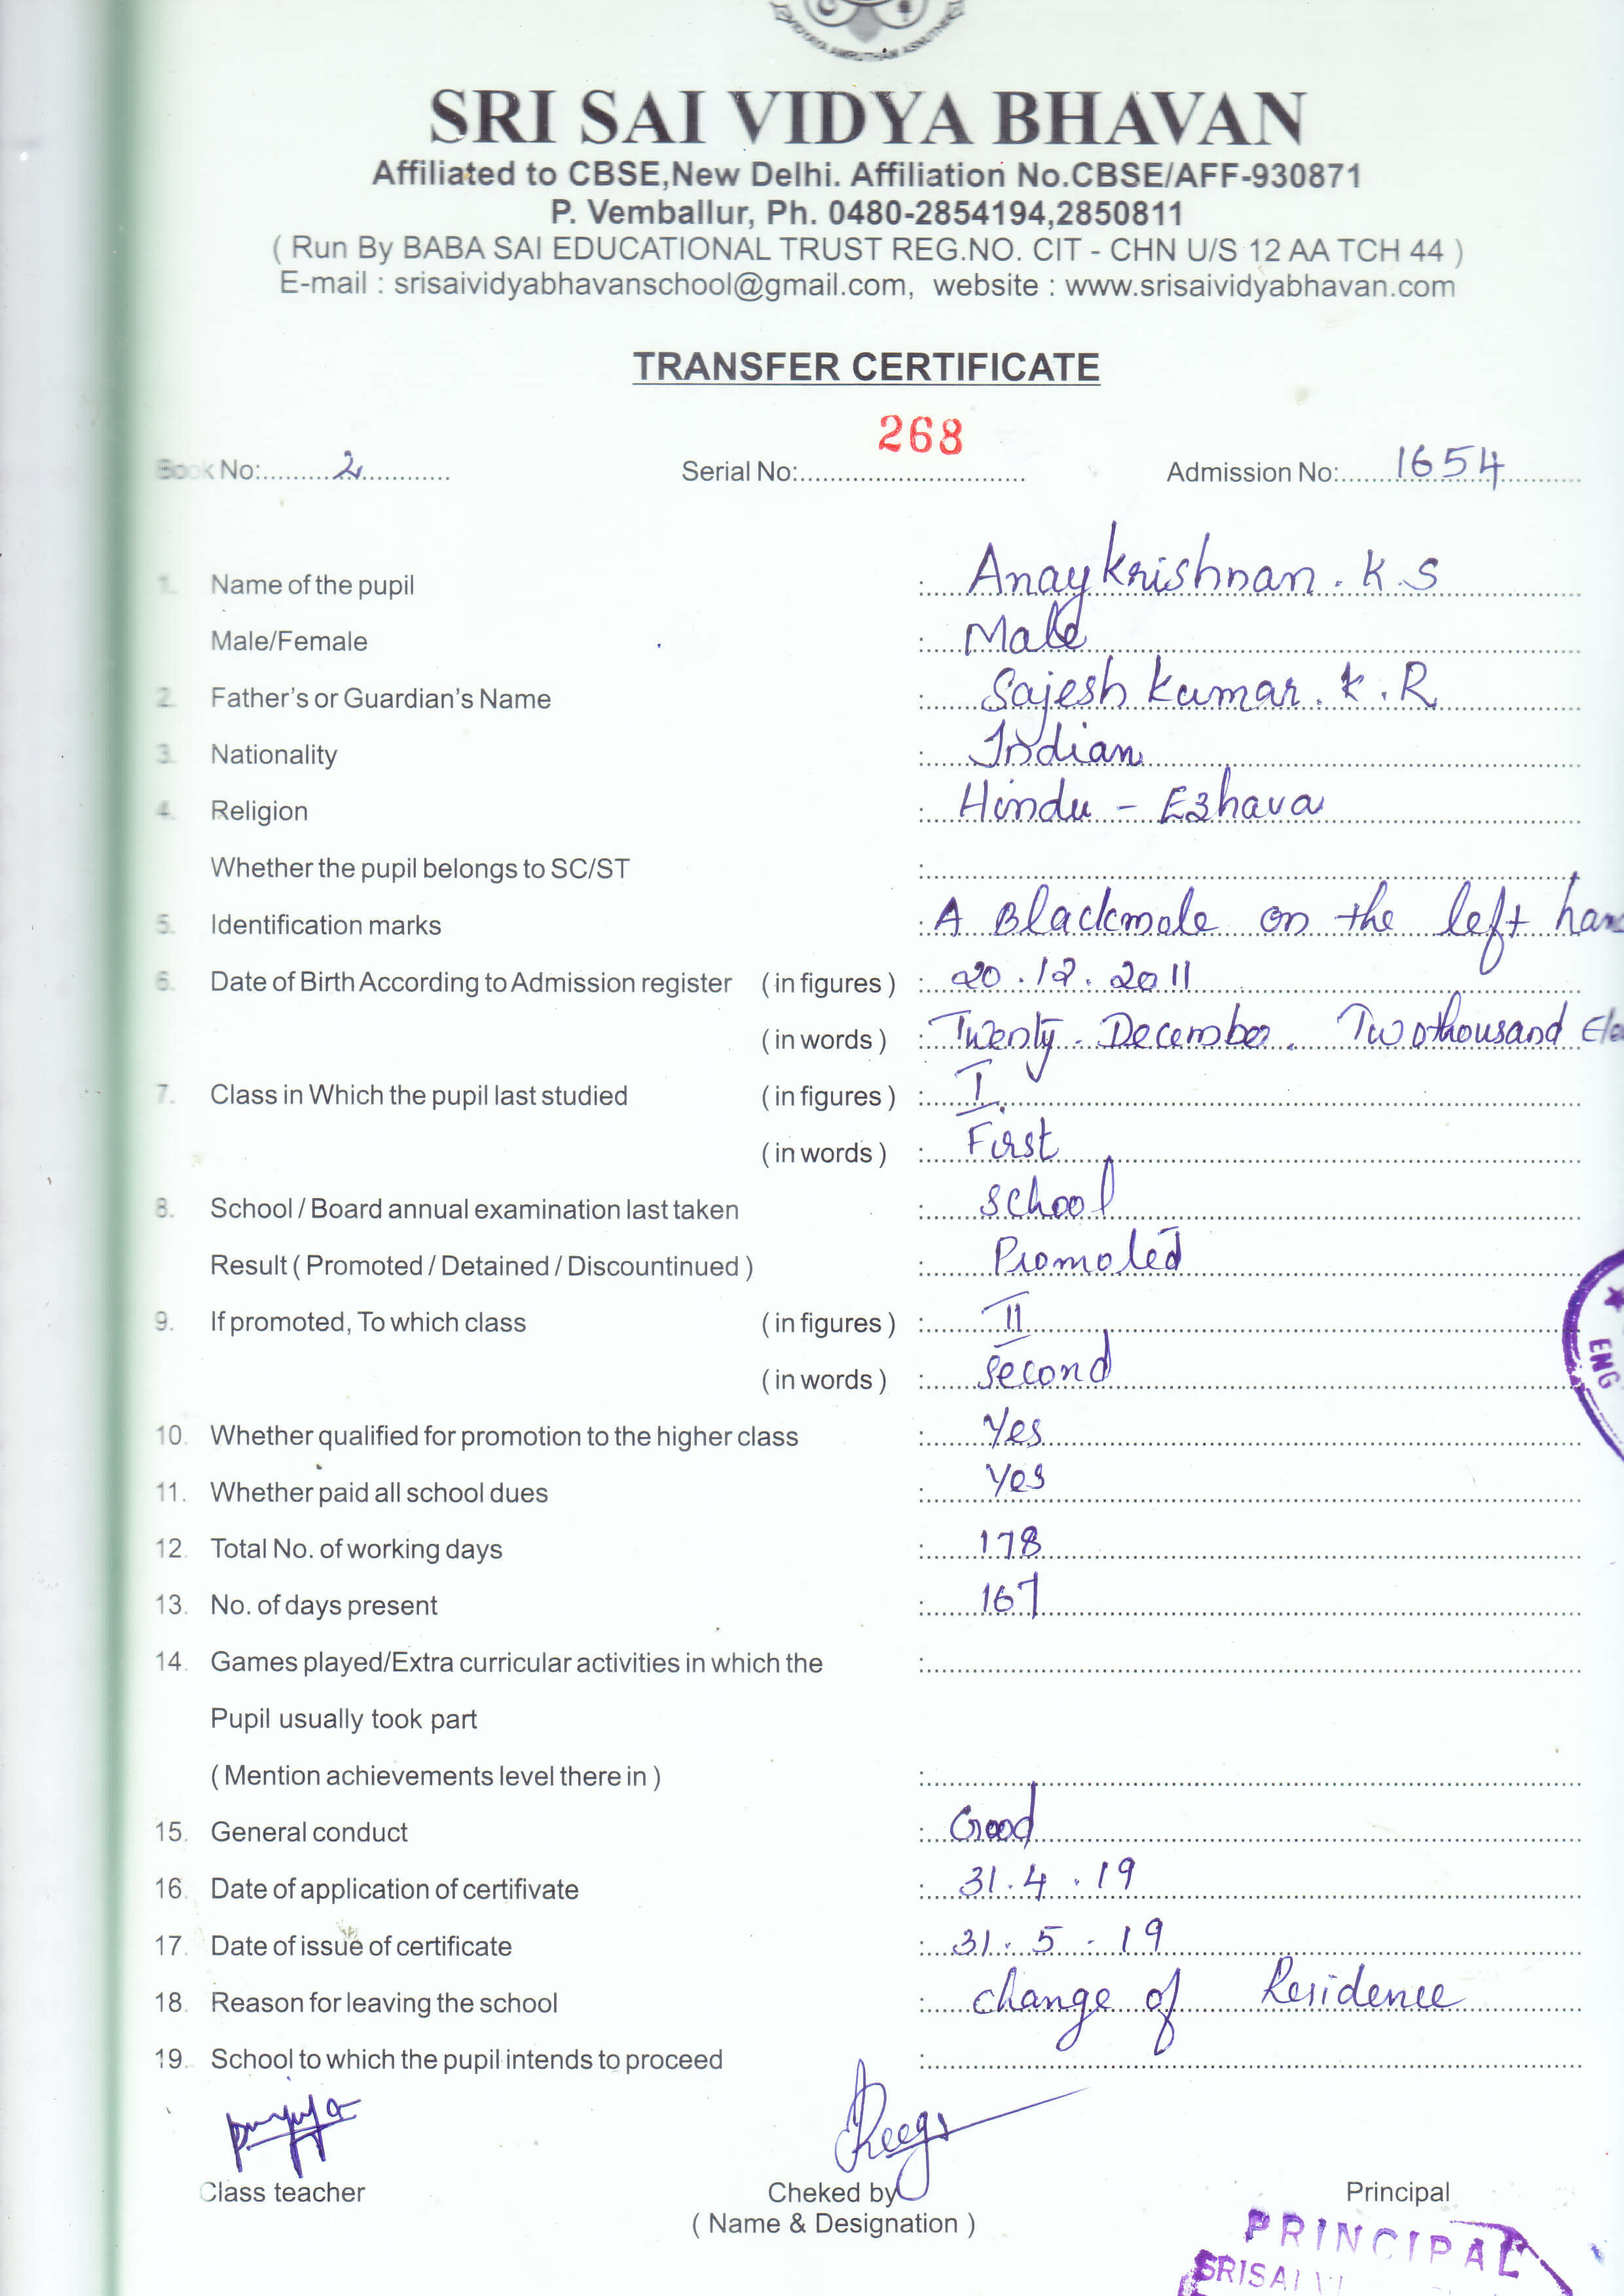 VIDYAYA AMRUTHAM ASNUTHE
SRI SAI VIDYA BHAVAN
Affiliated to CBSE,New Delhi. Affiliation No.CBSE/AFF-930871
P. Vemballur, Ph. 0480-2854194,2850811
( Run By BABA SAI EDUCATIONAL TRUST REG.NO. CIT - CHN U/S 12 AA TCH 44 )
E-mail : srisaividyabhavanschool@gmail.com, website : www.srisaividyabhavan.com
TRANSFER CERTIFICATE
Book No: 2 Serial No: 268 Admission No: 1654
1. Name of the pupil : Anay Krishnan . K . S
Male/Female : Male
2. Father's or Guardian's Name : Sajesh Kumar . K . R
3. Nationality : Indian
4. Religion : Hindu - Ezhava
Whether the pupil belongs to SC/ST :
5. Identification marks : A Blackmole on the left
6. Date of Birth According to Admission register ( in figures ) : 20 . 12 . 2011
( in words ) : Twenty . December . Twothousand
7. Class in Which the pupil last studied ( in figures ) : I
( in words ) : First
8. School / Board annual examination last taken : School
Result ( Promoted / Detained / Discountinued ) : Promoted
9. If promoted, To which class ( in figures ) : II
( in words ) : Second
10. Whether qualified for promotion to the higher class : Yes
11. Whether paid all school dues : Yes
12. Total No. of working days : 178
13. No. of days present : 167
14. Games played/Extra curricular activities in which the :
Pupil usually took part
( Mention achievements level there in ) :
15. General conduct : Good
16. Date of application of certifivate : 31 . 4 . 19
17. Date of issue of certificate : 31 . 5 . 19
18. Reason for leaving the school : change of Residence
19. School to which the pupil intends to proceed :
ENG
Class teacher Cheked by Principal
( Name & Designation )
PRINCIPAL
SRISAI VI